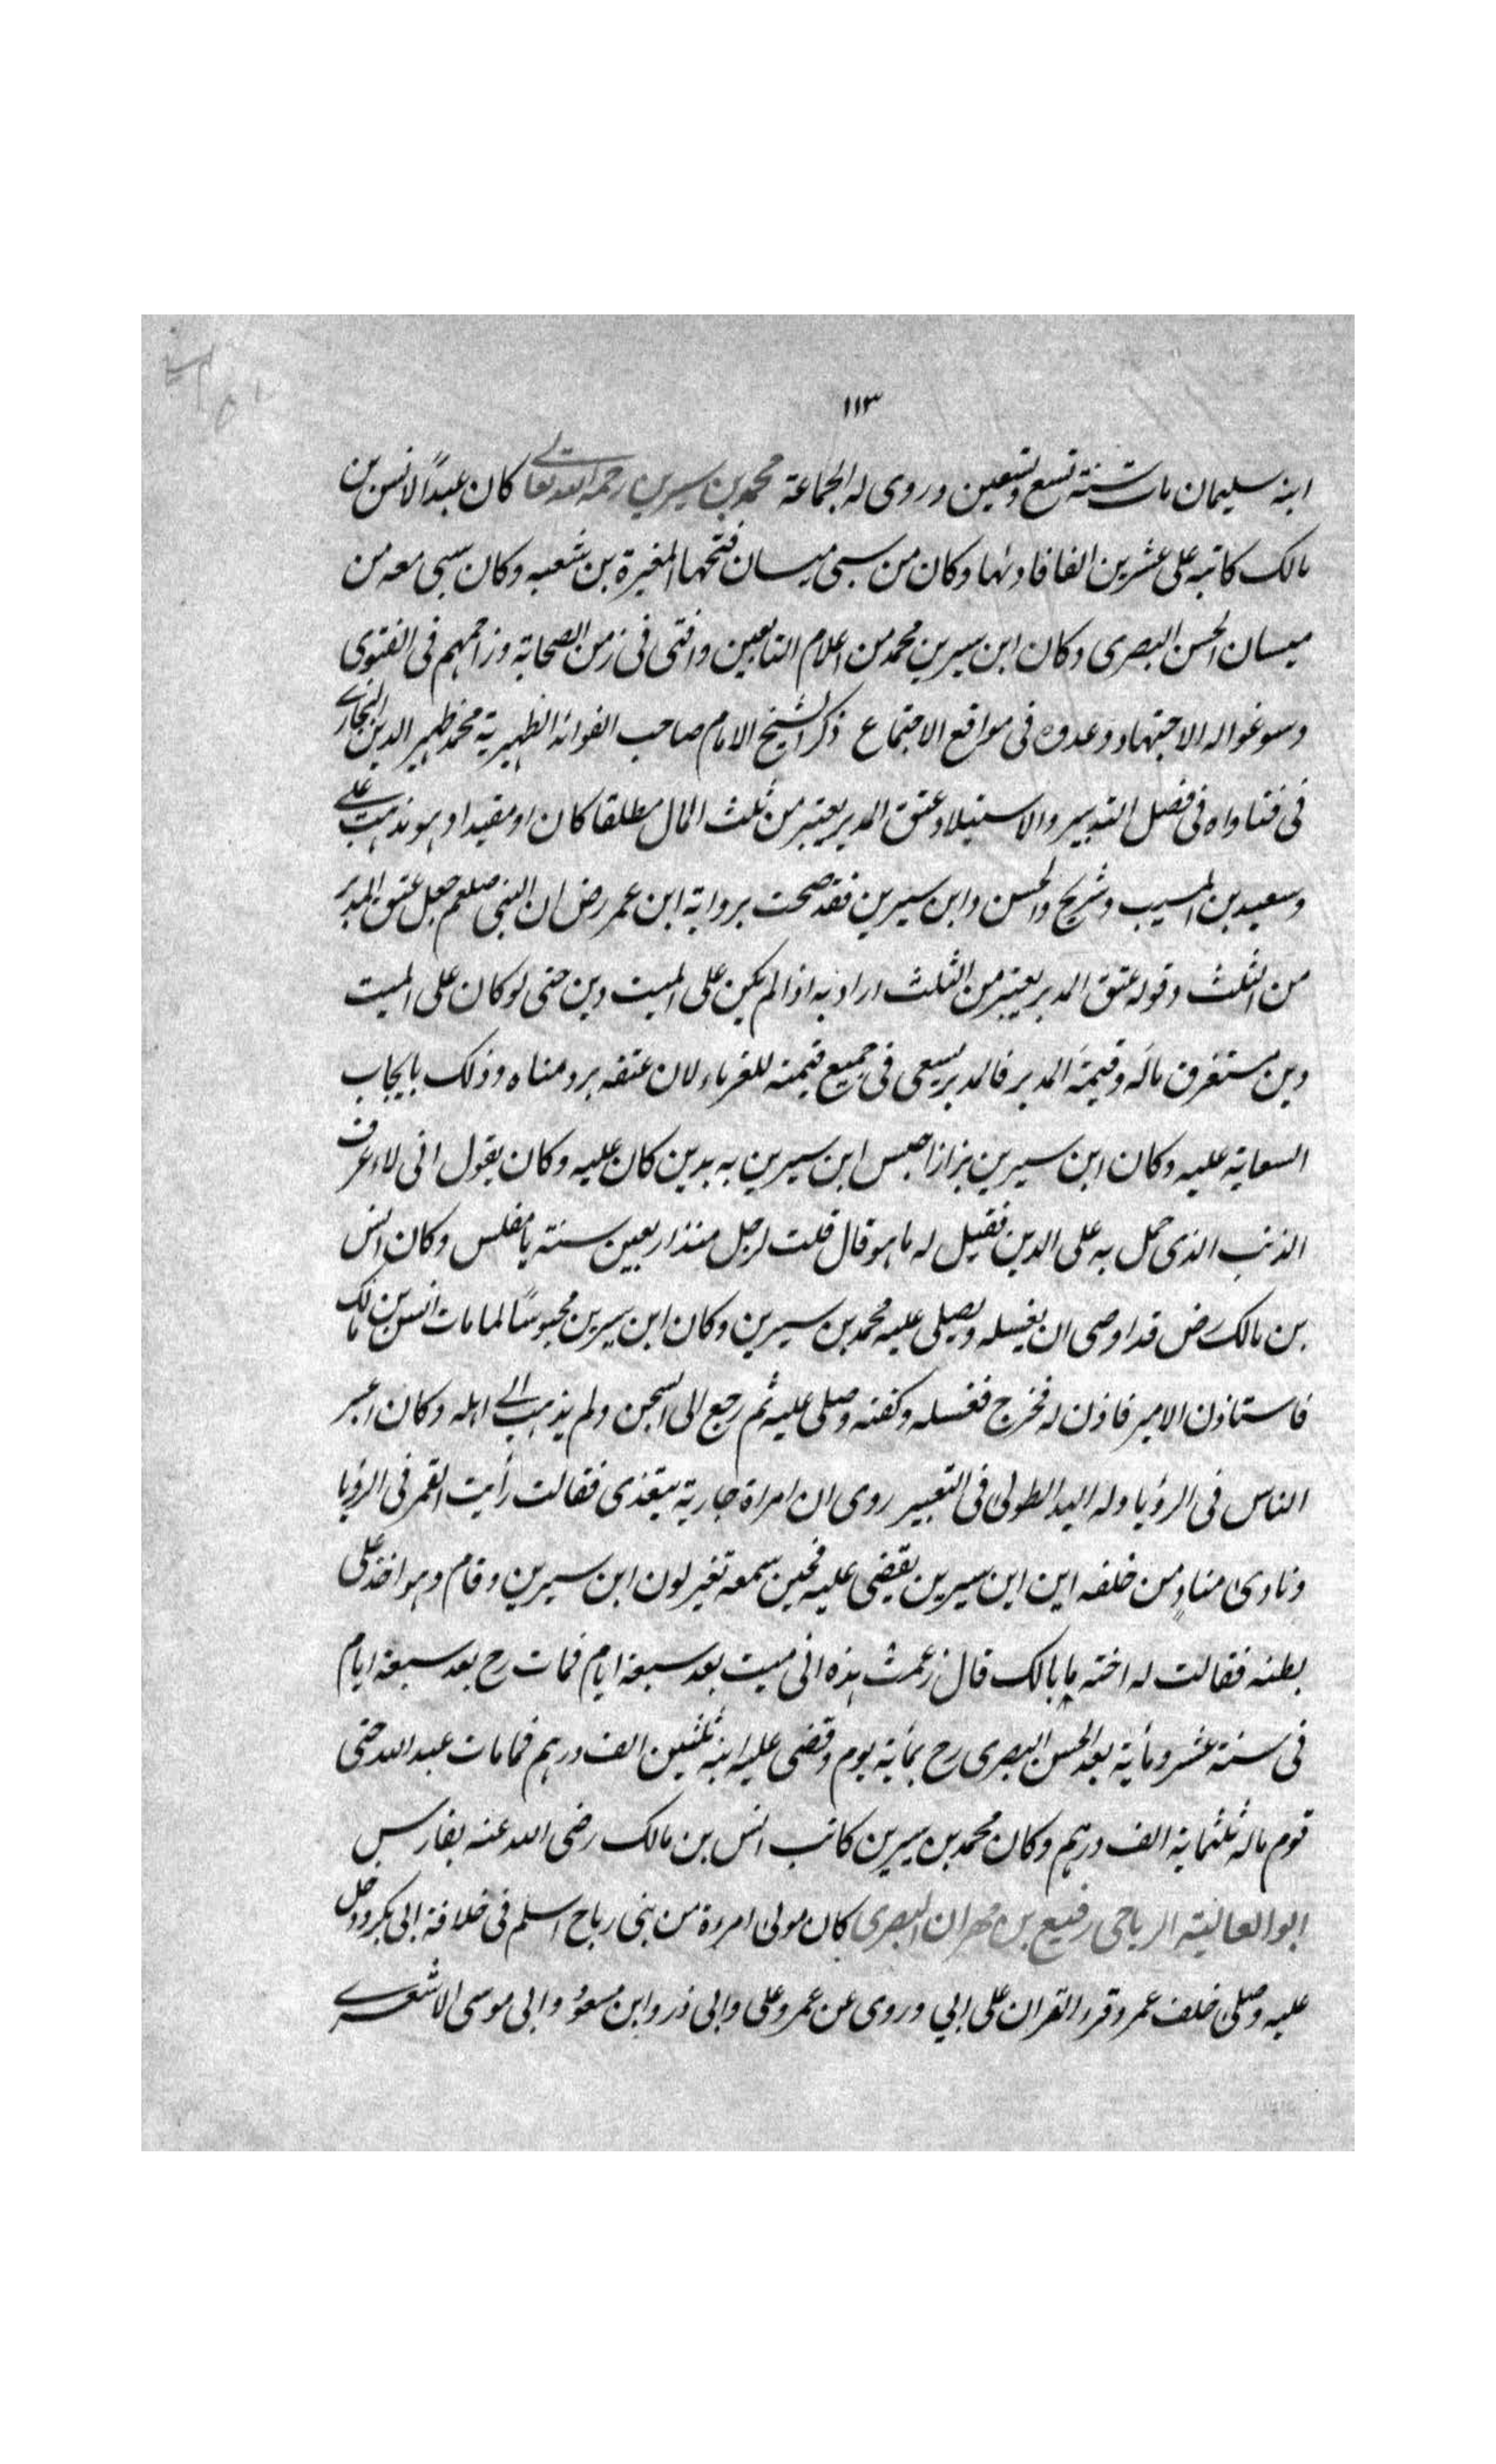 ١١٣
ابنه سليمان مات سنة تسع وتسعين وروى له الجماعة محمد بن سيرين رحمه الله تعالى كان عبدًا لانس بن
مالك كاتبه على عشرين الفا فادئها وكان من سبى ميسان فتحها المغيرة بن شعبه وكان سبى معه من
ميسان الحسن البصرى وكان ابن سيرين محمد من اعلام التابعين وافتى فى زمن الصحابة وزاحمهم فى الفتوى
وسوغوا له الاجتهاد وعدوه فى مواقع الاجتماع ذكر الشيخ الامام صاحب الفوائد الظهيرية محمد ظهير الدين البخارى
فى فتاواه فى فصل التدبير والاستيلاد عتق المدبر يعتبر من ثلث المال مطلقا كان او مقيدا وهو مذهب على
وسعيد بن المسيب وشريح والحسن وابن سيرين فقد صحت برواية ابن عمر رض ان النبى صلعم جعل عتق المدبر
من الثلث وقوله عتق المدبر يعتبر من الثلث اراد به اذا لم يكن على الميت دين حتى لو كان على الميت
دين مستغرق ماله وقيمة المدبر فالمدبر يسعى فى جميع قيمته للغرماء لان عتقه برد مناه وذلك بايجاب
السعاية عليه وكان ابن سيرين بزازا حبس ابن سيرين به بدين كان عليه وكان يقول انى لاعرف
الذنب الذى حمل به على الدين فقيل له ما هو قال قلت لرجل منذ اربعين سنة يا مفلس وكان انس
بن مالك رض قد اوصى ان يغسله ويصلى عليه محمد بن سيرين وكان ابن سيرين محبوسًا لما مات انس بن مالك
فاستاذن الامير فاذن له فخرج فغسله وكفنه وصلى عليه ثم رجع الى السجن ولم يذهب الى اهله وكان اعبر
الناس فى الرؤيا وله اليد الطولى فى التعبير روى ان امراة جارية يتغذى فقالت رأيت القمر فى الرؤيا
ونادى منادٍ من خلفه اين ابن سيرين يقضى عليه فحين سمعه تغير لون ابن سيرين وقام وهو اخذ على
بطنه فقالت له اخته ما بالك قال زعمت هذه انى ميت بعد سبعة ايام فمات رح بعد سبعة ايام
فى سنة عشر ومائة بعد الحسن البصرى رح بمائة يوم وقضى عليه ابنه ثلثين الف درهم فما مات عبد الله حتى
قوم ماله ثلثمائة الف درهم وكان محمد بن سيرين كاتب انس بن مالك رضى الله عنه بفارس
ابو العالية الرياحى رفيع بن مهران البصرى كان مولى امروة من بنى رياح اسلم فى خلافة ابى بكر ودخل
عليه وصلى خلف عمر وقرء القران على ابي وروى عن عمر وعلى وابى ذر وابن مسعود وابى موسى الاشعرى